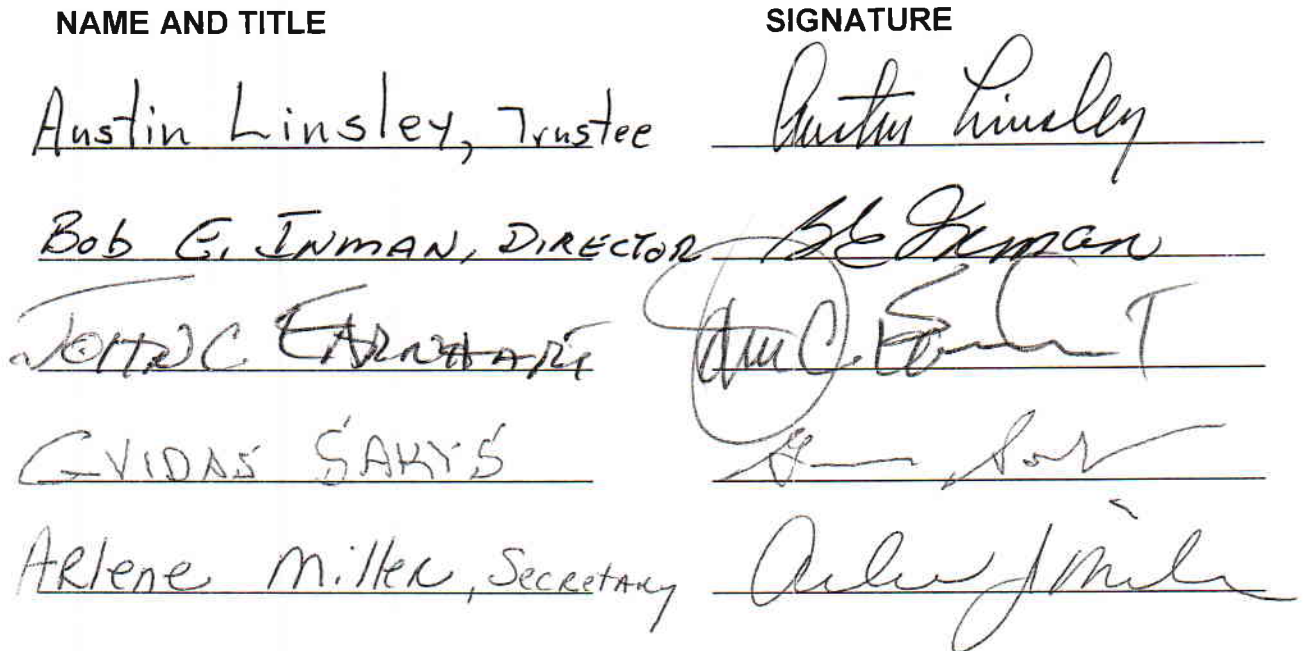 NAME AND TITLE SIGNATURE
Austin Linsley, Trustee Austin Linsley
Bob E. INMAN, DIRECTOR BE Inman
JOHN C. EARNHART
GVIDAS SAKYS
ARlene Miller, Secretary Arlene J Miller